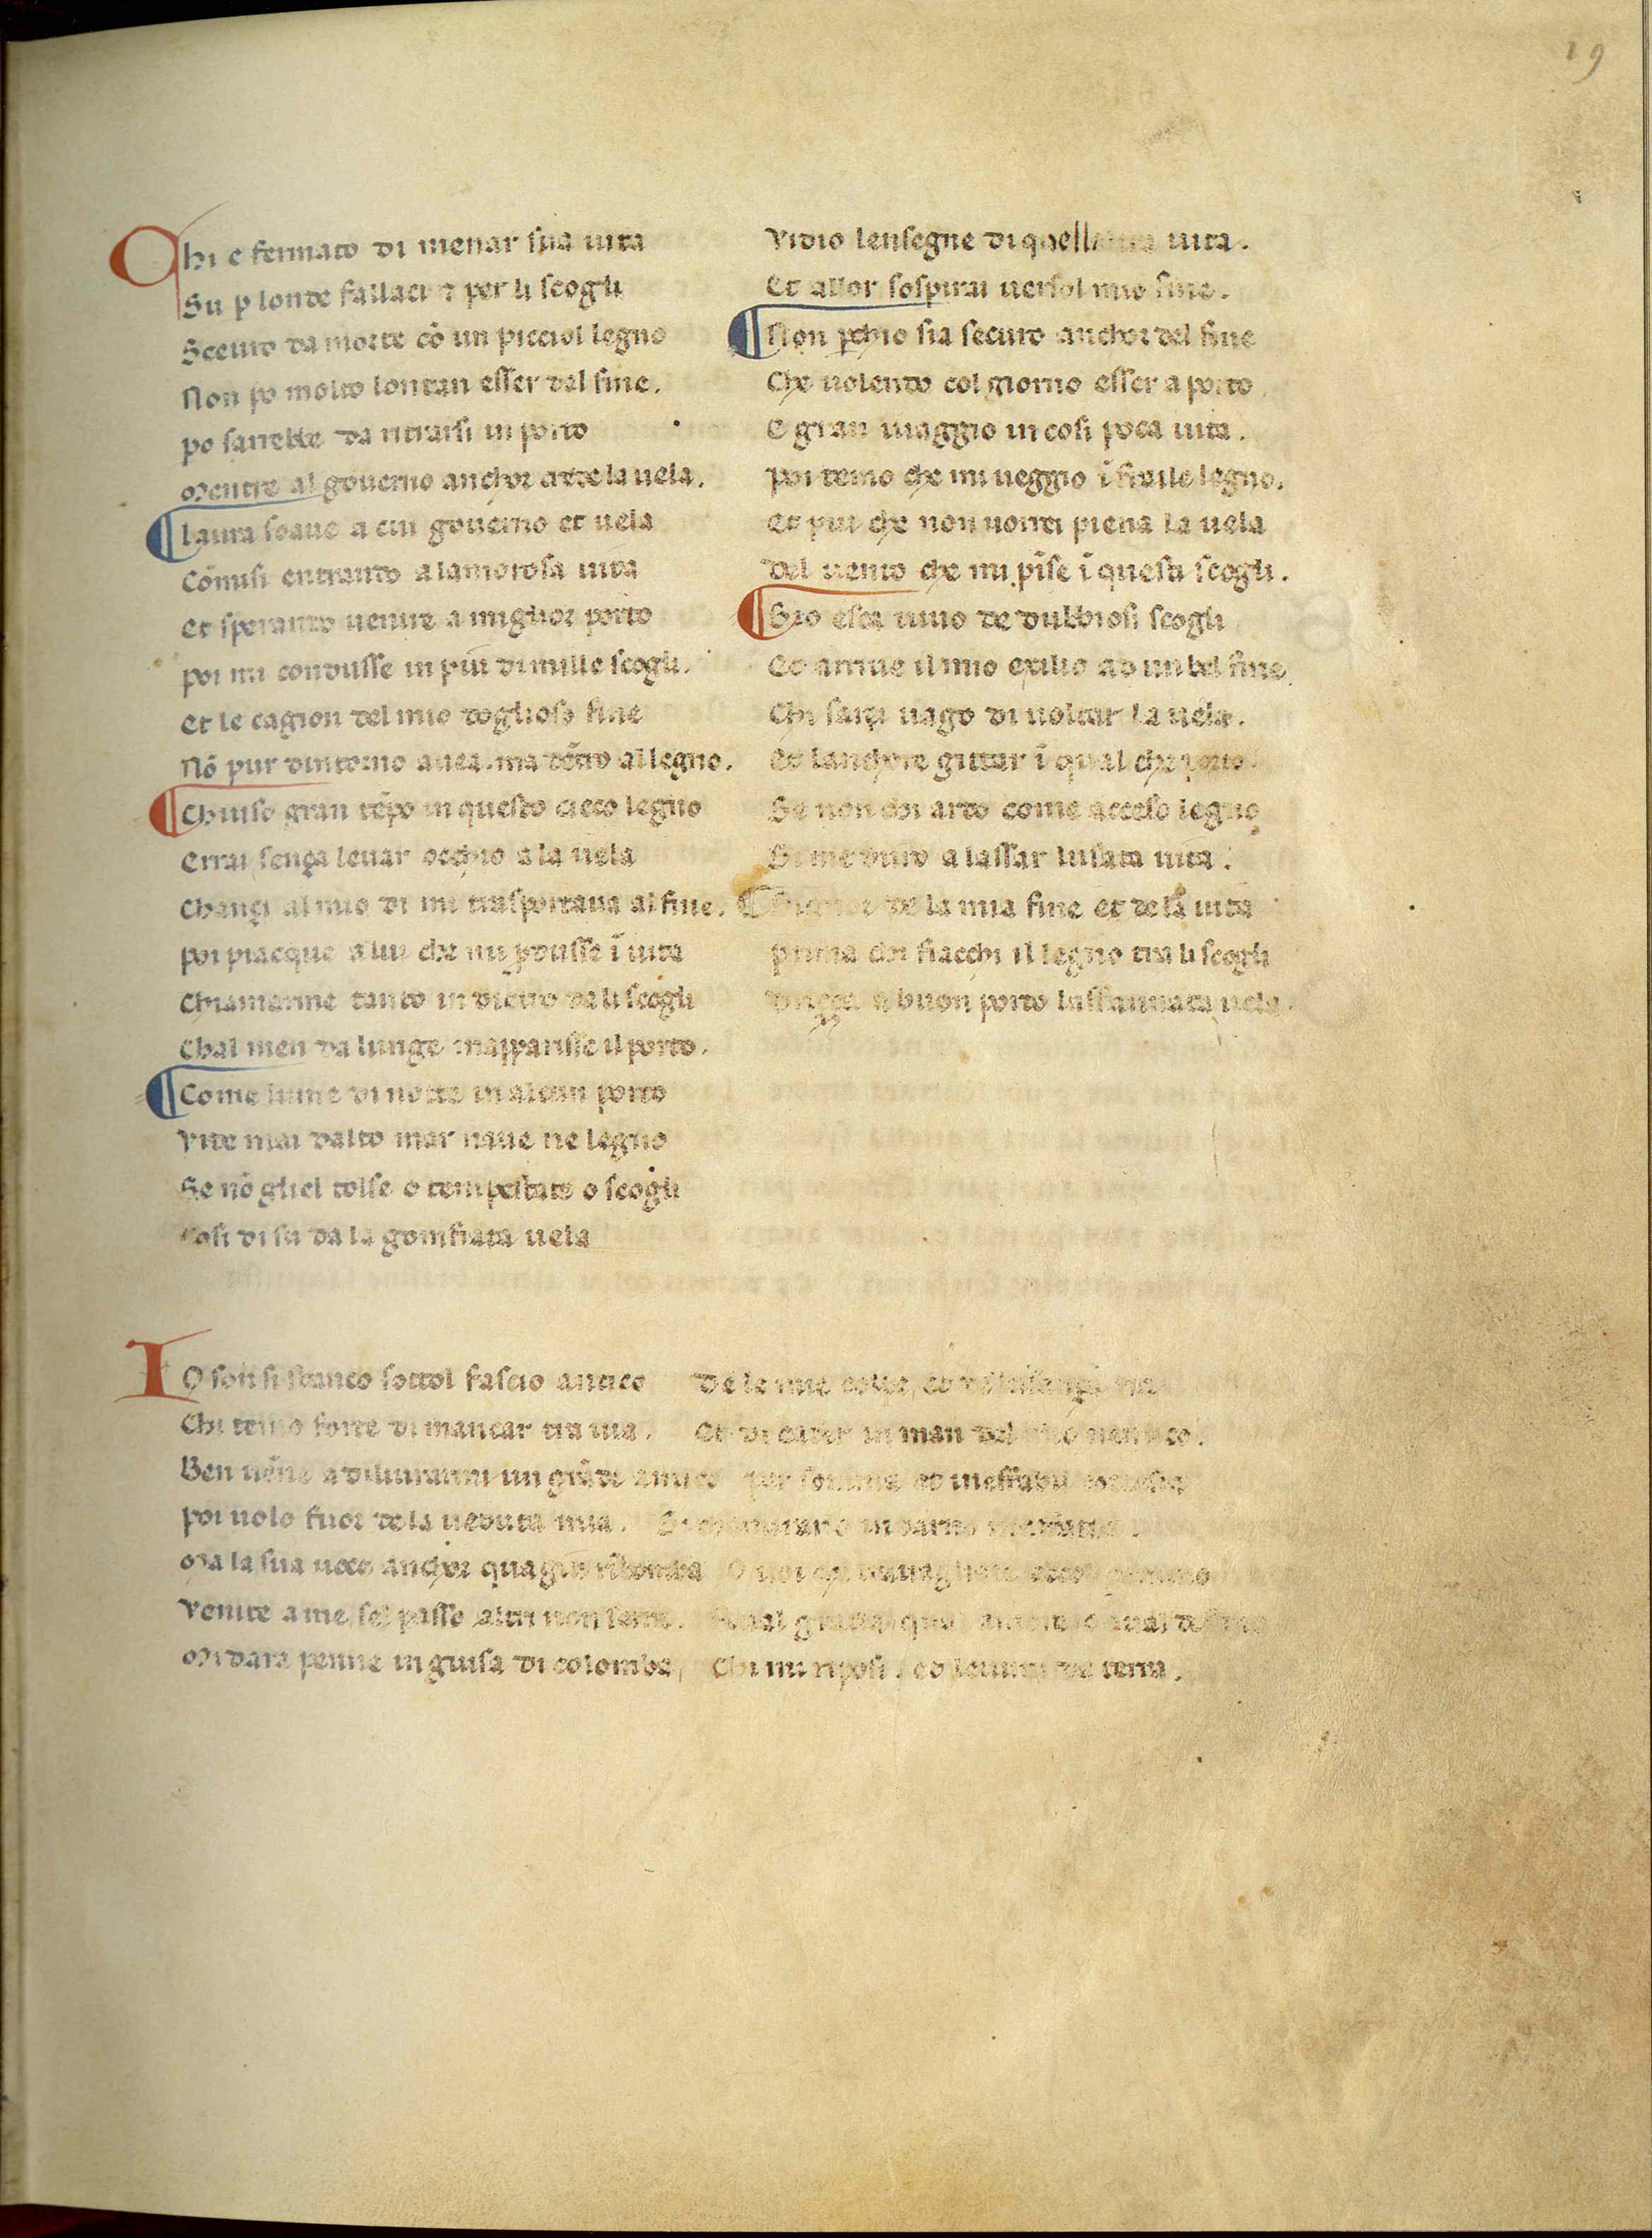 19
Chi e fermato di menar sua uita
Su p londe fallaci ⁊ per li scogli
Sceuro da morte cō un picciol legno
Non po molto lontan esser dal fine.
po sarrebbe da ritrarsi in porto
Mentre al gouerno anchor crede la uela.
Laura soaue a cui gouerno et uela
Cōmisi entrando alamorosa uita
et sperando uenire a miglior porto
poi mi condusse in piu di mille scogli.
et le cagion del mio doglioso fine
Nō pur dintorno auea. ma dētro al legno.
Chiuso gran tēpo in questo cieco legno
errai sença leuar occhio ala uela
Chançi al mio di mi trasportaua al fine.
poi piacque a lui che mi produsse ī uita
Chiamarme tanto indietro dali scogli
Chal men da lunge mapparisse il porto.
Come lume di notte in alcun porto
Vide mai dalto mar naue ne legno
Se nō gliel tolse o tempestate o scogli
Cosi di su da la gomfiata uela
Vidio lensegne di quell uita.
Et allor sospirai uersol mio fine.
Non pchio sia securo anchor del fine
Che uolendo col giorno esser a porto
E gran uiaggio in cosi poca uita.
poi temo che mi ueggio ī fraile legno.
et piu che non uorrei piena la uela
del uento che mi pīse ī questi scogli.
Sio esca uiuo de dubbiosi scogli
Et arriue il mio exilio ad un bel fine
Chi sarei uago di uoltar la uela.
Et lanchore gittar ī qual che porto
Se non chi ardo come acceso legno
Si me duro a lassar lusata uita.
Signor de la mia fine et dela uita
prima chi fiacchi il legno tra li scogli
Driçça a buon porto laffannata uela.
IO son si stanco sottol fascio antico De le mie colpe,
Chi temo forte di mancar tra uia. Et di cader in man del mio nemico.
Ben uēne a diliurarmi un grāde amico per somma et ineffabil cortesia
poi uolo fuor de la ueduta mia. Si indarno
Ma la sua uoce anchor qua giu rībomba O uoi che trauagliate ecco
Venite a me, sel passo altri non serra. Qual gratia, qual amore, o qual destino
Mi dara penne in guisa di colomba, Chi mi riposi, et leuimi da terra.